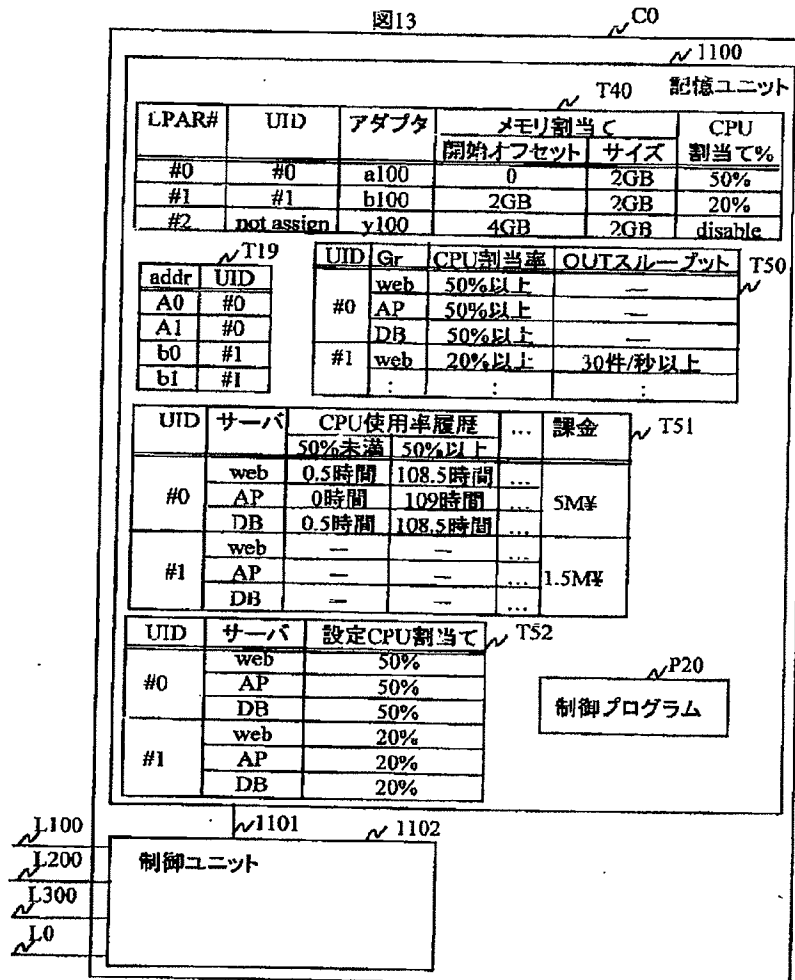 図13
C0
1100
記憶ユニット
T40
LPAR# UID アダプタ メモリ割当て CPU
開始オフセット サイズ 割当て%
#0 #0 a100 0 2GB 50%
#1 #1 b100 2GB 2GB 20%
#2 not assign y100 4GB 2GB disable
T19
addr UID
A0 #0
A1 #0
b0 #1
b1 #1
T50
UID Gr CPU割当率 OUTスループット
#0
web 50%以上 —
AP 50%以上 —
DB 50%以上 —
#1 web 20%以上 30件/秒以上
: : :
T51
UID サーバ CPU使用率履歴 … 課金
50%未満 50%以上
#0
web 0.5時間 108.5時間 …
AP 0時間 109時間 …
DB 0.5時間 108.5時間 …
5M¥
#1
web — — …
AP — — …
DB — — …
1.5M¥
T52
UID サーバ 設定CPU割当て
#0
web 50%
AP 50%
DB 50%
#1
web 20%
AP 20%
DB 20%
P20
制御プログラム
1101
1102
制御ユニット
L100
L200
L300
L0